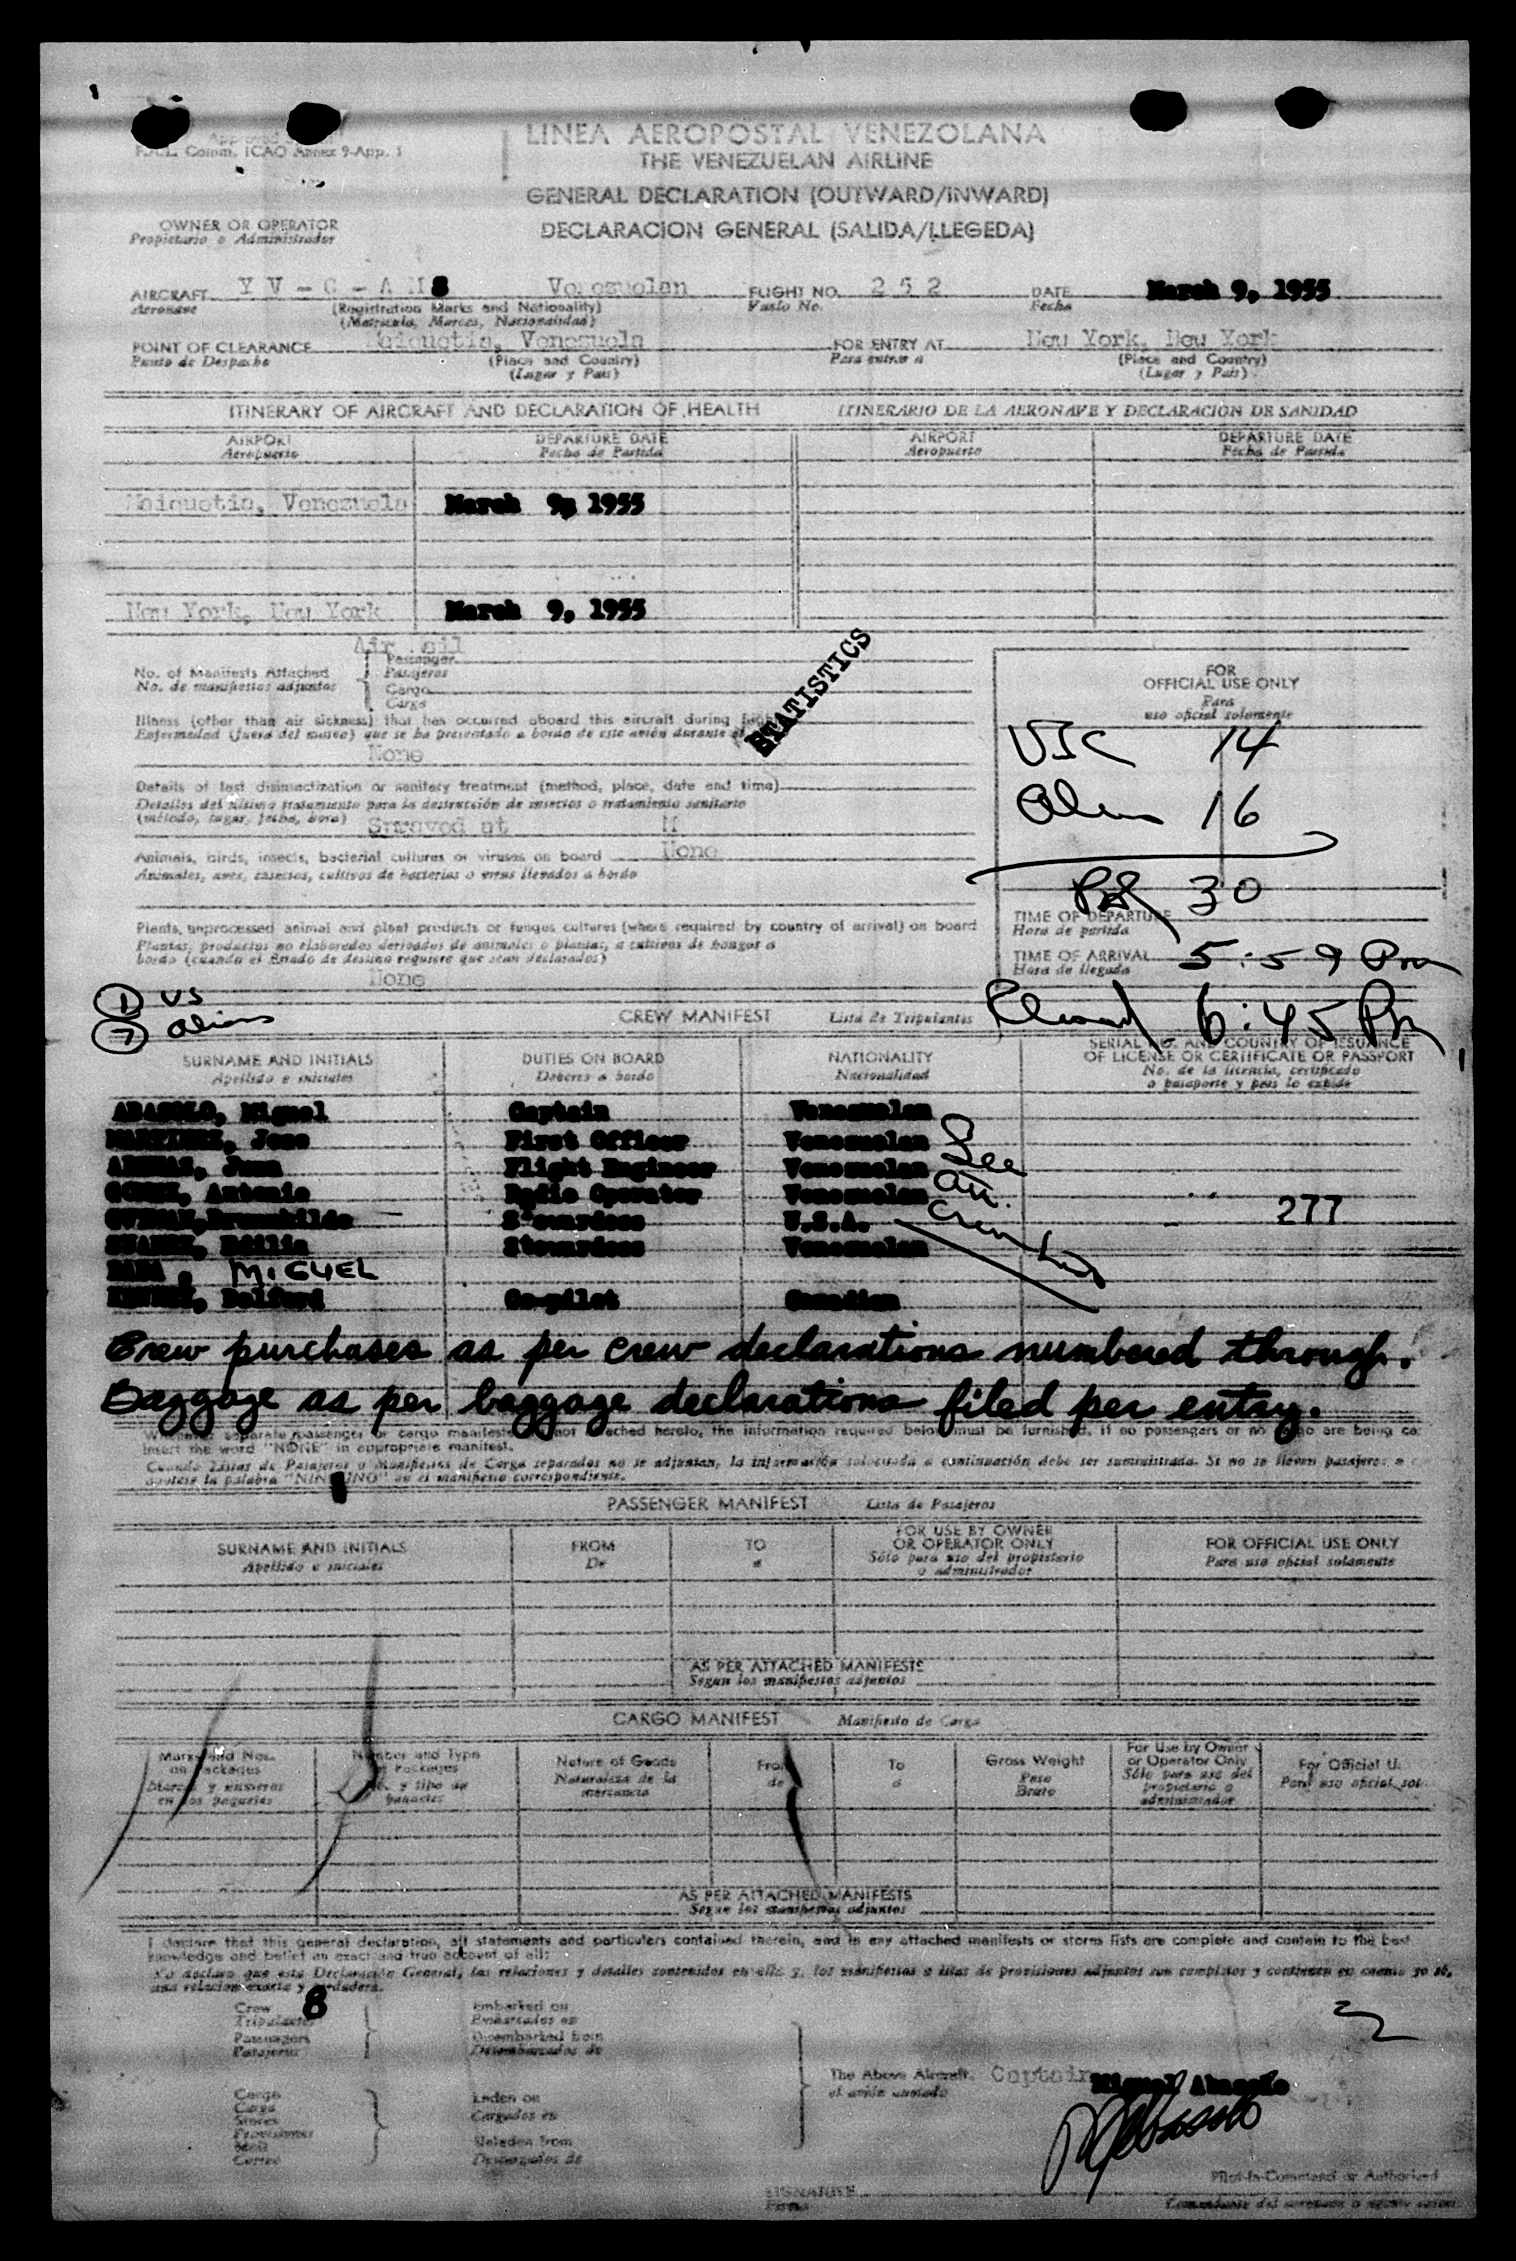 Approved
F.A.L. Comm. ICAO Annex 9-App. 1
LINEA AEROPOSTAL VENEZOLANA
THE VENEZUELAN AIRLINE
GENERAL DECLARATION (OUTWARD/INWARD)
DECLARACION GENERAL (SALIDA/LLEGEDA)
OWNER OR OPERATOR
Propietario o Administrador
AIRCRAFT Y V - C - A M S Venezuelan FLIGHT NO. 2 5 2 DATE March 9, 1955
Aeronave (Registration Marks and Nationality) Vuelo No. Fecha
(Matricula, Marcas, Nacionalidad)
POINT OF CLEARANCE Maiquetia, Venezuela FOR ENTRY AT New York, New York
Punto de Despacho (Place and Country) Para entrar a (Place and Country)
(Lugar y Pais) (Lugar y Pais)
ITINERARY OF AIRCRAFT AND DECLARATION OF HEALTH ITINERARIO DE LA AERONAVE Y DECLARACION DE SANIDAD
AIRPORT DEPARTURE DATE AIRPORT DEPARTURE DATE
Aeropuerto Fecha de Partida Aeropuerto Fecha de Partida
Maiquetia, Venezuela March 9, 1955
New York, New York March 9, 1955
Air Mail
No. of Manifests Attached Passenger
No. de manifiestos adjuntos Pasajeros
Cargo
Cargo
STATISTICS
FOR
OFFICIAL USE ONLY
Para
uso oficial solamente
Illness (other than air sickness) that has occurred aboard this aircraft during
Enfermedad (fuera del mareo) que se ha presentado a bordo de este avión durante el
None
USC 14
Details of last disinsectization or sanitary treatment (method, place, date and time)
Detalles del último tratamiento para la destrucción de insectos o tratamiento sanitario
(método, lugar, fecha, hora) Sprayed at M
Alien 16
Animals, birds, insects, bacterial cultures or viruses on board None
Animales, aves, insectos, cultivos de bacterias o virus llevados a bordo
30
Plants, unprocessed animal and plant products or fungus cultures (where required by country of arrival) on board
Plantas, productos no elaborados derivados de animales o plantas, o cultivos de hongos a
bordo (cuando el Estado de destino requiere que sean declarados)
None
TIME OF DEPARTURE
Hora de partida
TIME OF ARRIVAL 5:59 Pm
Hora de llegada
6:45 Pm
1 US
7 Aliens
CREW MANIFEST Lista de Tripulantes
SURNAME AND INITIALS DUTIES ON BOARD NATIONALITY SERIAL NO. AND COUNTRY OF ISSUANCE
Apellido e iniciales Deberes a bordo Nacionalidad OF LICENSE OR CERTIFICATE OR PASSPORT
No. de la licencia, certificado
o pasaporte y pais lo expide
ABASOLO, Miguel Captain Venezuelan
MARTINEZ, Jose First Officer Venezuelan
Juan Flight Engineer Venezuelan
GOMEZ, Antonio Radio Operator Venezuelan
Brunhilde Stewardess U.S.A.
SUAREZ, Stewardess Venezuelan
MIGUEL
Co-pilot Canadian
See
att.
277
Crew purchases as per crew declarations numbered through.
Baggage as per baggage declarations filed per entry.
Whenever separate passenger or cargo manifests not attached hereto, the information required below must be furnished. If no passengers or no cargo are being
insert the word "NONE" in appropriate manifest.
Cuando Listas de Pasajeros o Manifiestos de Carga separados no se adjuntan, la información solicitada a continuación debe ser suministrada. Si no se llevan pasajeros o
anotese la palabra "NINGUNO" en el manifiesto correspondiente.
PASSENGER MANIFEST Lista de Pasajeros
SURNAME AND INITIALS FROM TO FOR USE BY OWNER OR OPERATOR ONLY FOR OFFICIAL USE ONLY
Apellido e iniciales De a Sólo para uso del propietario o administrador Para uso oficial solamente
AS PER ATTACHED MANIFESTS
Segun los manifiestos adjuntos
CARGO MANIFEST Manifiesto de Carga
Marks and Nos. on Packages Number and Type of Packages Nature of Goods From To Gross Weight For Use by Owner or Operator Only For Official U.
Marcas y números en los paquetes No. y tipo de paquetes Naturaleza de la mercancia de a Peso Bruto Sólo para uso del propietario o administrador Para uso oficial sol
AS PER ATTACHED MANIFESTS
Segun los manifiestos adjuntos
I declare that this general declaration, all statements and particulars contained therein, and in any attached manifests or stores lists are complete and contain to the best
knowledge and belief an exact and true account of all:
Yo declaro que esta Declaración General, las relaciones y detalles contenidos en ella y, los manifiestos o listas de provisiones adjuntos son completos y contienen en cuanto yo sé,
una relacion exacta y verdadera.
Crew 8 Embarked on
Tripulantes Embarcados en
Passengers Disembarked from
Pasajeros Desembarcados de
The Above Aircraft. Captain Miguel Abasolo
el avión anotado
Cargo Laden on
Carga Cargados en
Stores
Provisiones
Mail Unladen from
Correo Descargados de
SIGNATURE
Firma
Pilot-in-Command or Authorized
Comandante del aeronave o agente